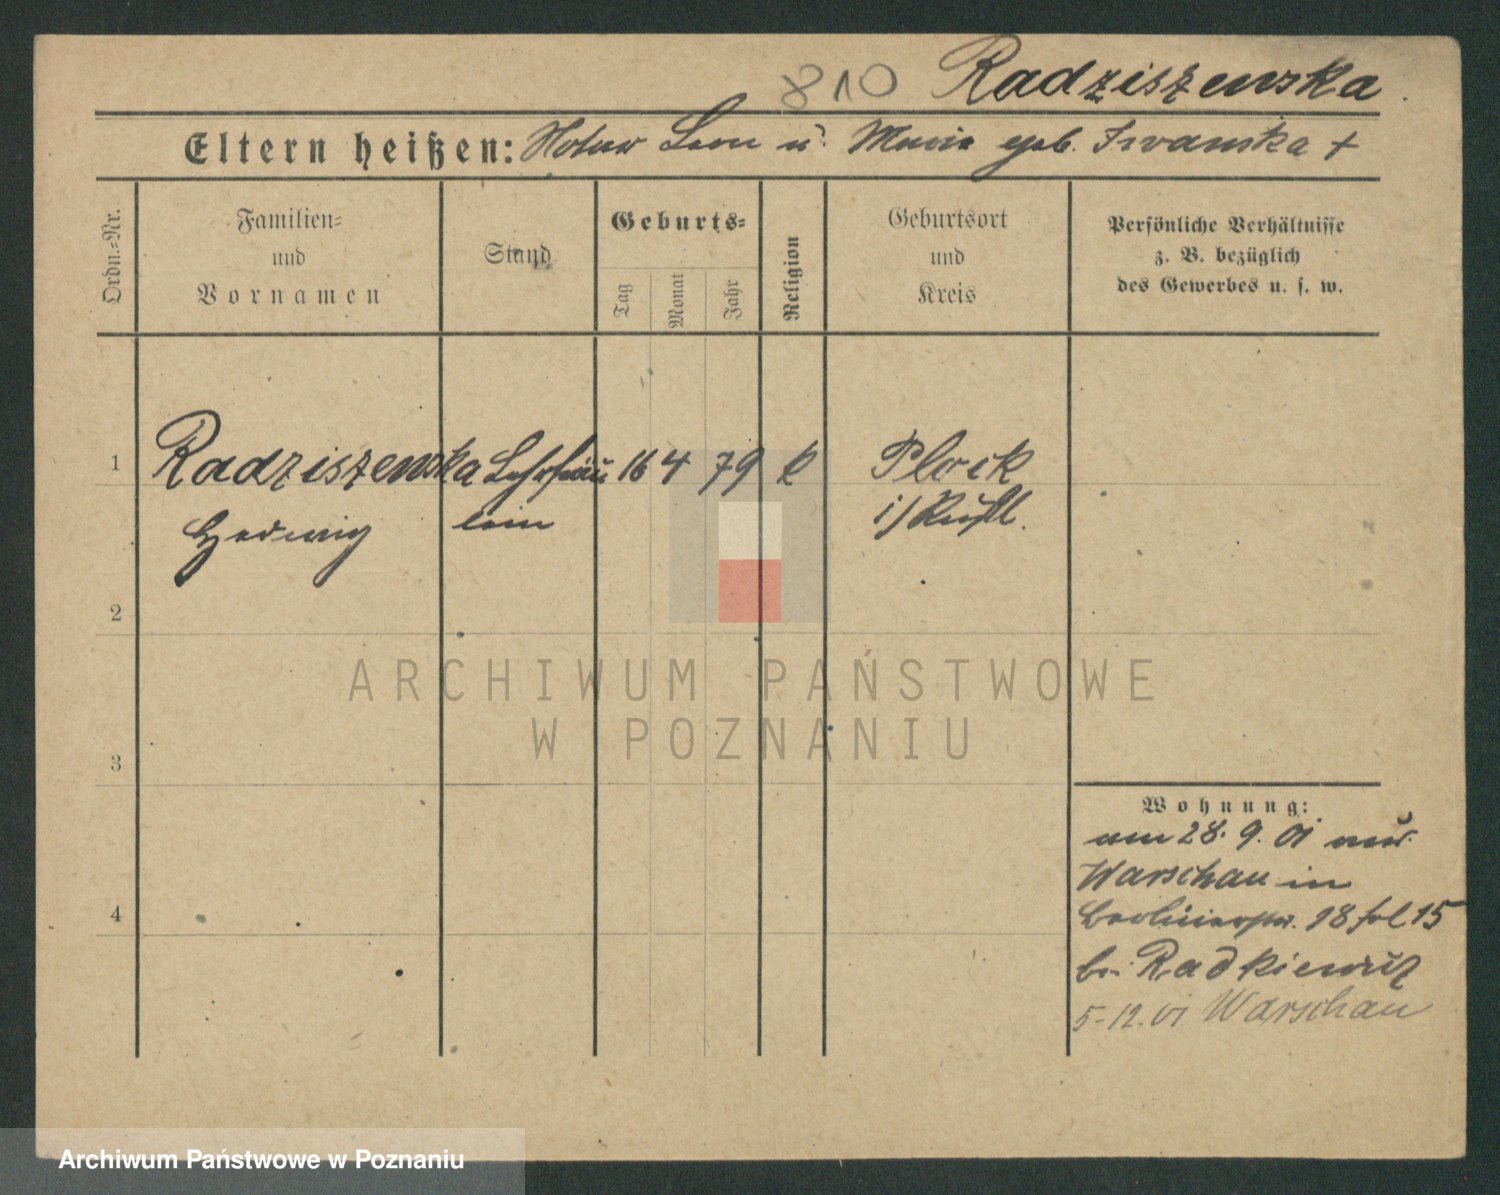 810 Radziszewska
Eltern heißen: Notar Leon u. Maria geb. Iwanska +
Ordn.=Nr.
Familien=
und
Vornamen
Stand
Geburts=
Tag
Monat
Jahr
Religion
Geburtsort
und
Kreis
Persönliche Verhältnisse
z. B. bezüglich
des Gewerbes u. s. w.
1 Radziszewska Lehrfräu 16 4 79 k Plock
Hedwig lein i/Rußl.
2
ARCHIWUM PAŃSTWOWE
W POZNANIU
3
Wohnung:
am 28. 9. 01 aus
Warschau in
4 Berlinerstr. 18 fol 15
bei Radkiewicz
5-12.01 Warschau
Archiwum Państwowe w Poznaniu